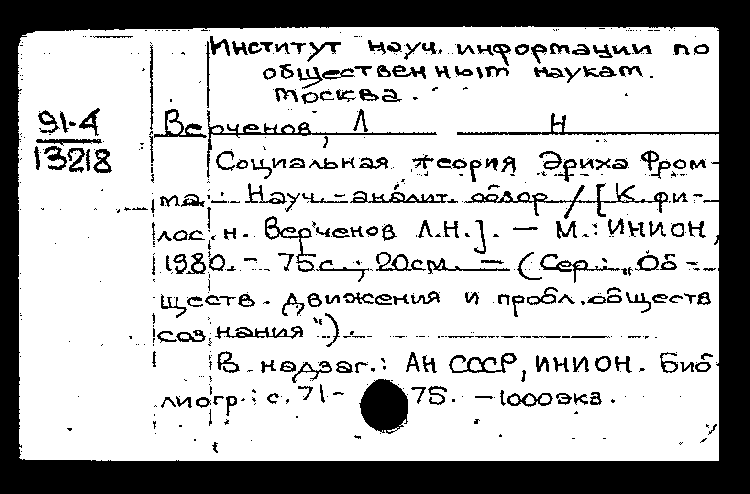 Институт науч. информации по
общественным наукам.
Москва.
91-4
13218
Верченов, Л Н
Социальная теория Эриха Фром-
ма: Науч.-аналит. обзор / [К. фи-
лос. н. Верченов Л.Н.]. - М.: ИНИОН,
1980. - 75 с.; 20 см. - (Сер.: "Об-
ществ. движения и пробл. обществ
сознания").
В надзаг.: АН СССР, ИНИОН. Биб-
лиогр.: с. 71-75. - 1000 экз.